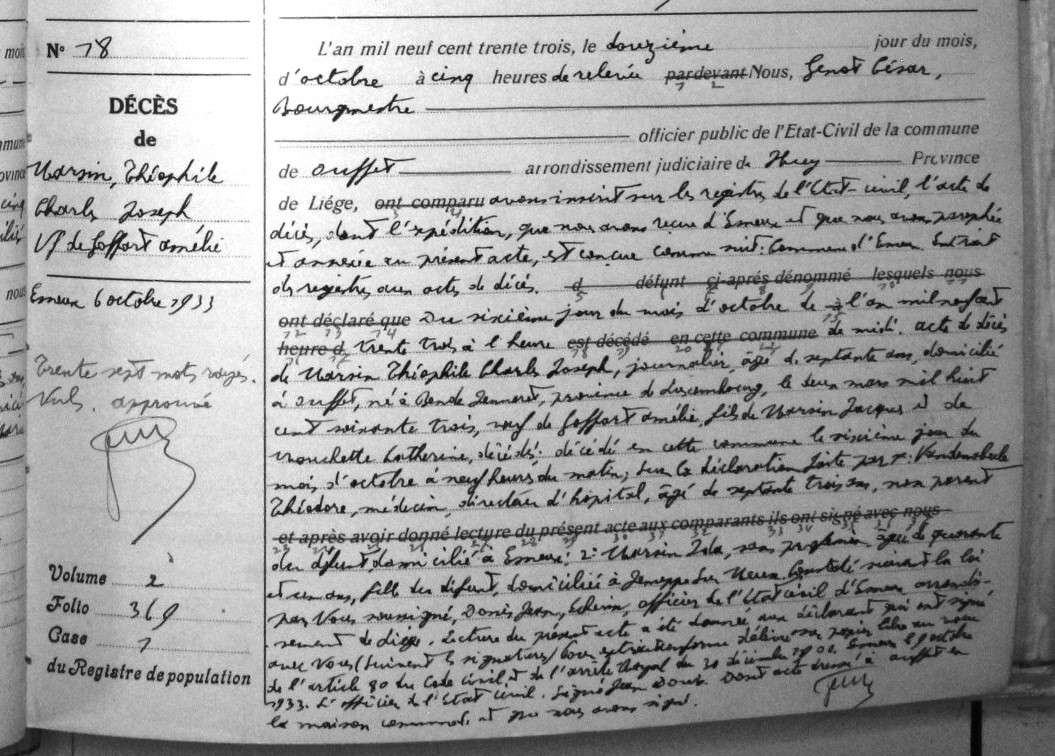 N° 78
DÉCÈS
de
Marsin, Théophile
Charles Joseph
Vf de Goffort Amélie
Esneux 6 octobre 1933
Trente sept mots rayés
nuls. approuvé
Volume 2
Folio 369
Case 1
du Registre de population
L'an mil neuf cent trente trois, le douzième jour du mois,
d'octobre à cinq heures de relevée par devant Nous, Genot César,
Bourgmestre
officier public de l'Etat-Civil de la commune
de Ouffet arrondissement judiciaire de Huy Province
de Liége, ont comparu avons inscrit sur les registres de l'Etat civil, l'acte de
décès, dont l'expédition, que nous avons reçue d'Esneux et que nous avons paraphée
et annexée au présent acte, est conçue comme suit: Commune d'Esneux. Extrait
des registres aux actes de décès. d défunt ci-après dénommé lesquels nous
ont déclaré que Du sixième jour du mois d'octobre de l'an mil neuf cent
heure d trente trois à 1 heure est décédé en cette commune de midi. acte de décès
de Marsin Théophile Charles Joseph, journalier, âgé de septante ans, domicilié
à Ouffet, né à Bende Jenneret, province de Luxembourg, le deux mars mil huit
cent soixante trois, veuf de Goffort Amélie, fils de Marsin Jacques et de
Catherine, décédés: décédé en cette commune le sixième jour du
mois d'octobre à neuf heures du matin; sur la déclaration faite par 1°
Théodore, médecin, directeur d'hôpital, âgé de septante trois ans, non parent
et après avoir donné lecture du présent acte aux comparants ils ont signé avec nous
du défunt domicilié à Esneux: 2° Marsin Ida, sans profession âgée de quarante
et un ans, fille du défunt, domiciliée à Jemeppe sur Meuse. Constaté suivant la loi
par Nous soussigné, Donis Jean, Echevin, officier de l'Etat civil d'Esneux arrondis-
sement de Liége. Lecture du présent acte a été donnée aux déclarants qui ont signé
avec Nous (suivent les signatures) Pour extrait conforme délivré sur papier libre au vœu
de l'article 80 du Code civil et de l'arrêté Royal du 30 décembre Esneux 9 octobre
1933. L'officier de l'Etat civil. Signé Jean Donis. Dont acte dressé à Ouffet en
la maison communale et que nous avons signé.